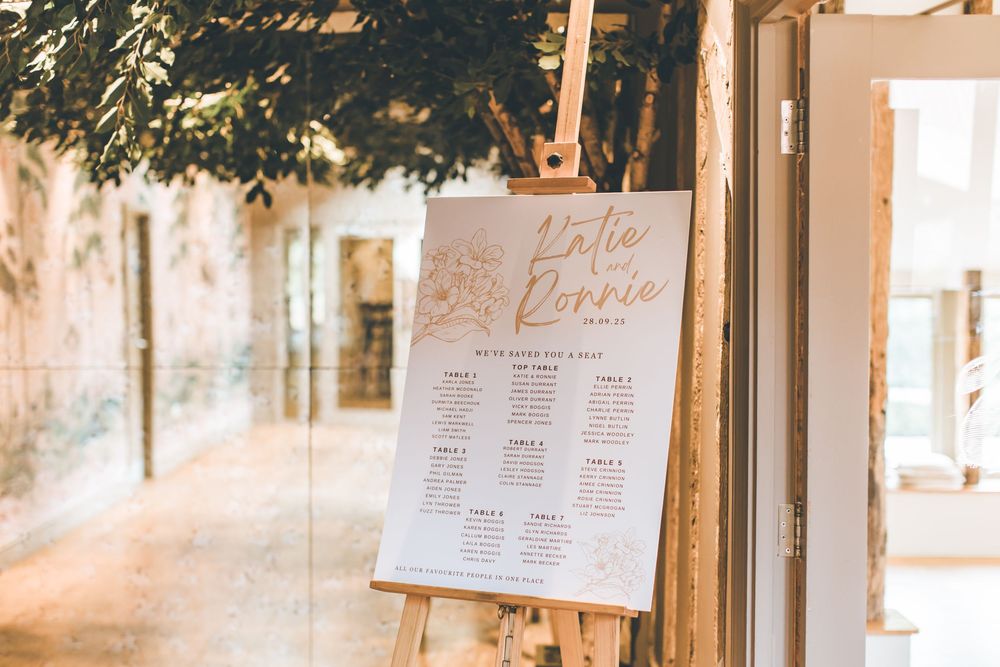 Katie
and
Ronnie
28.09.25
WE'VE SAVED YOU A SEAT
TABLE 1
KARLA JONES
HEATHER MCDONALD
SARAH ROOKE
DURMITA BEECHOUK
MICHAEL HADJI
SAM KENT
LEWIS MARKWELL
LIAM SMITH
SCOTT MATLESS
TOP TABLE
KATIE & RONNIE
SUSAN DURRANT
JAMES DURRANT
OLIVER DURRANT
VICKY BOGGIS
MARK BOGGIS
SPENCER JONES
TABLE 2
ELLIE PERRIN
ADRIAN PERRIN
ABIGAIL PERRIN
CHARLIE PERRIN
LYNNE BUTLIN
NIGEL BUTLIN
JESSICA WOODLEY
MARK WOODLEY
TABLE 3
DEBBIE JONES
GARY JONES
PHIL GILMAN
ANDREA PALMER
AIDEN JONES
EMILY JONES
LYN THROWER
FUZZ THROWER
TABLE 4
ROBERT DURRANT
SARAH DURRANT
DAVID HODGSON
LESLEY HODGSON
CLAIRE STANNAGE
COLIN STANNAGE
TABLE 5
STEVE CRINNION
KERRY CRINNION
AIMEE CRINNION
ADAM CRINNION
ROSIE CRINNION
STUART MCROGAN
LIZ JOHNSON
TABLE 6
KEVIN BOGGIS
KAREN BOGGIS
CALLUM BOGGIS
LAILA BOGGIS
KAREN BOGGIS
CHRIS DAVY
TABLE 7
SANDIE RICHARDS
GLYN RICHARDS
GERALDINE MARTIRE
LES MARTIRE
ANNETTE BECKER
MARK BECKER
ALL OUR FAVOURITE PEOPLE IN ONE PLACE